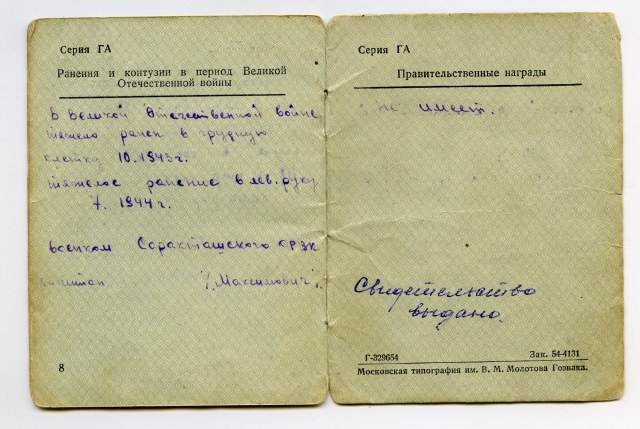 Серия ГА
Ранения и контузии в период Великой
Отечественной войны
В Великой Отечественной войне
тяжело ранен в грудную
клетку 10.1943г.
тяжелое ранение в лев. руку
7. 1944г.
военком Саракташского РВК
капитан /Максимович/.
8
Серия ГА
Правительственные награды
не имеет.
Свидетельство
выдано.
Г-329654 Зак. 54-4131
Московская типография им. В. М. Молотова Гознака.